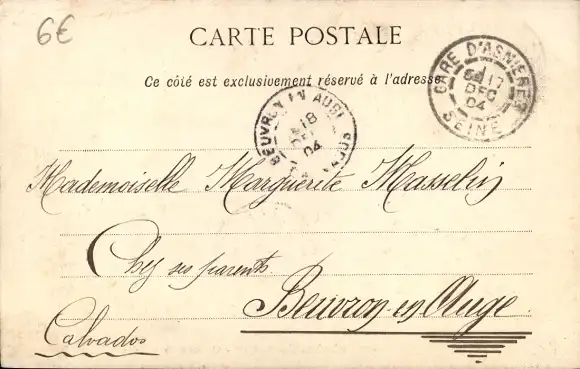 6€
CARTE POSTALE
Ce côté est exclusivement réservé à l'adresse
GARE D'ASNIERES
17
DEC
04
SEINE
BEUVRON EN AUGE
18
DEC
04
Mademoiselle Marguerite Masselin
Chez ses parents
Beuvron-en-Auge
Calvados